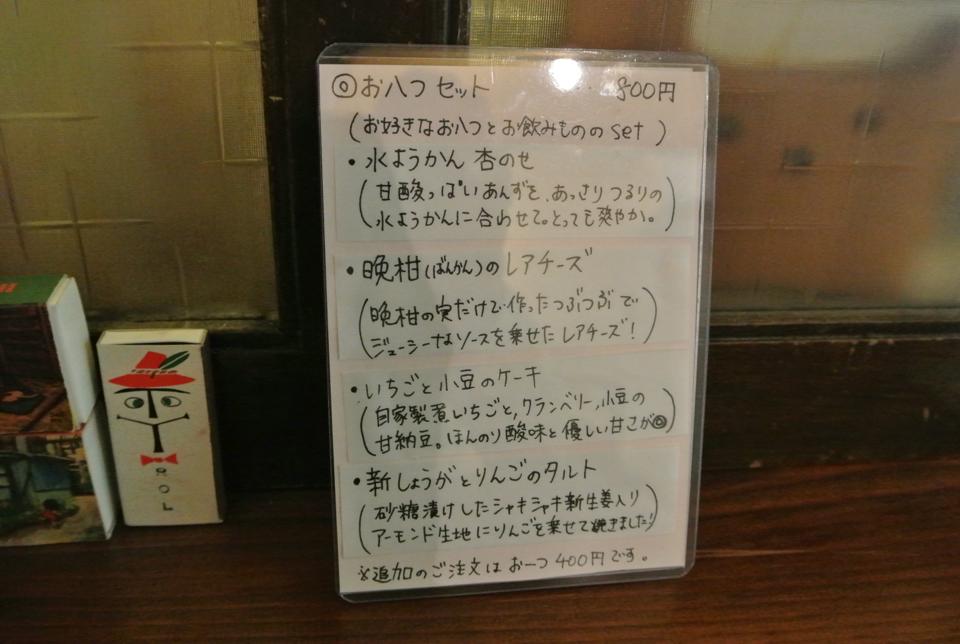 ◎お八つセット ‥ 800円
(お好きなお八つとお飲みもののset)
・水ようかん 杏のせ
(甘酸っぱいあんずを、あっさりつるりの
水ようかんに合わせて。とっても爽やか。)
・晩柑(ばんかん)のレアチーズ
(晩柑の実だけで作ったつぶつぶで
ジューシーなソースを乗せたレアチーズ!)
・いちごと小豆のケーキ
(自家製煮いちごと,クランベリー,小豆の
甘納豆。ほんのり酸味と優しい甘さが◎)
・新しょうがとりんごのタルト
(砂糖漬けしたシャキシャキ新生姜入り
アーモンド生地にりんごを乗せて焼きました!)
※追加のご注文はお一つ400円です。